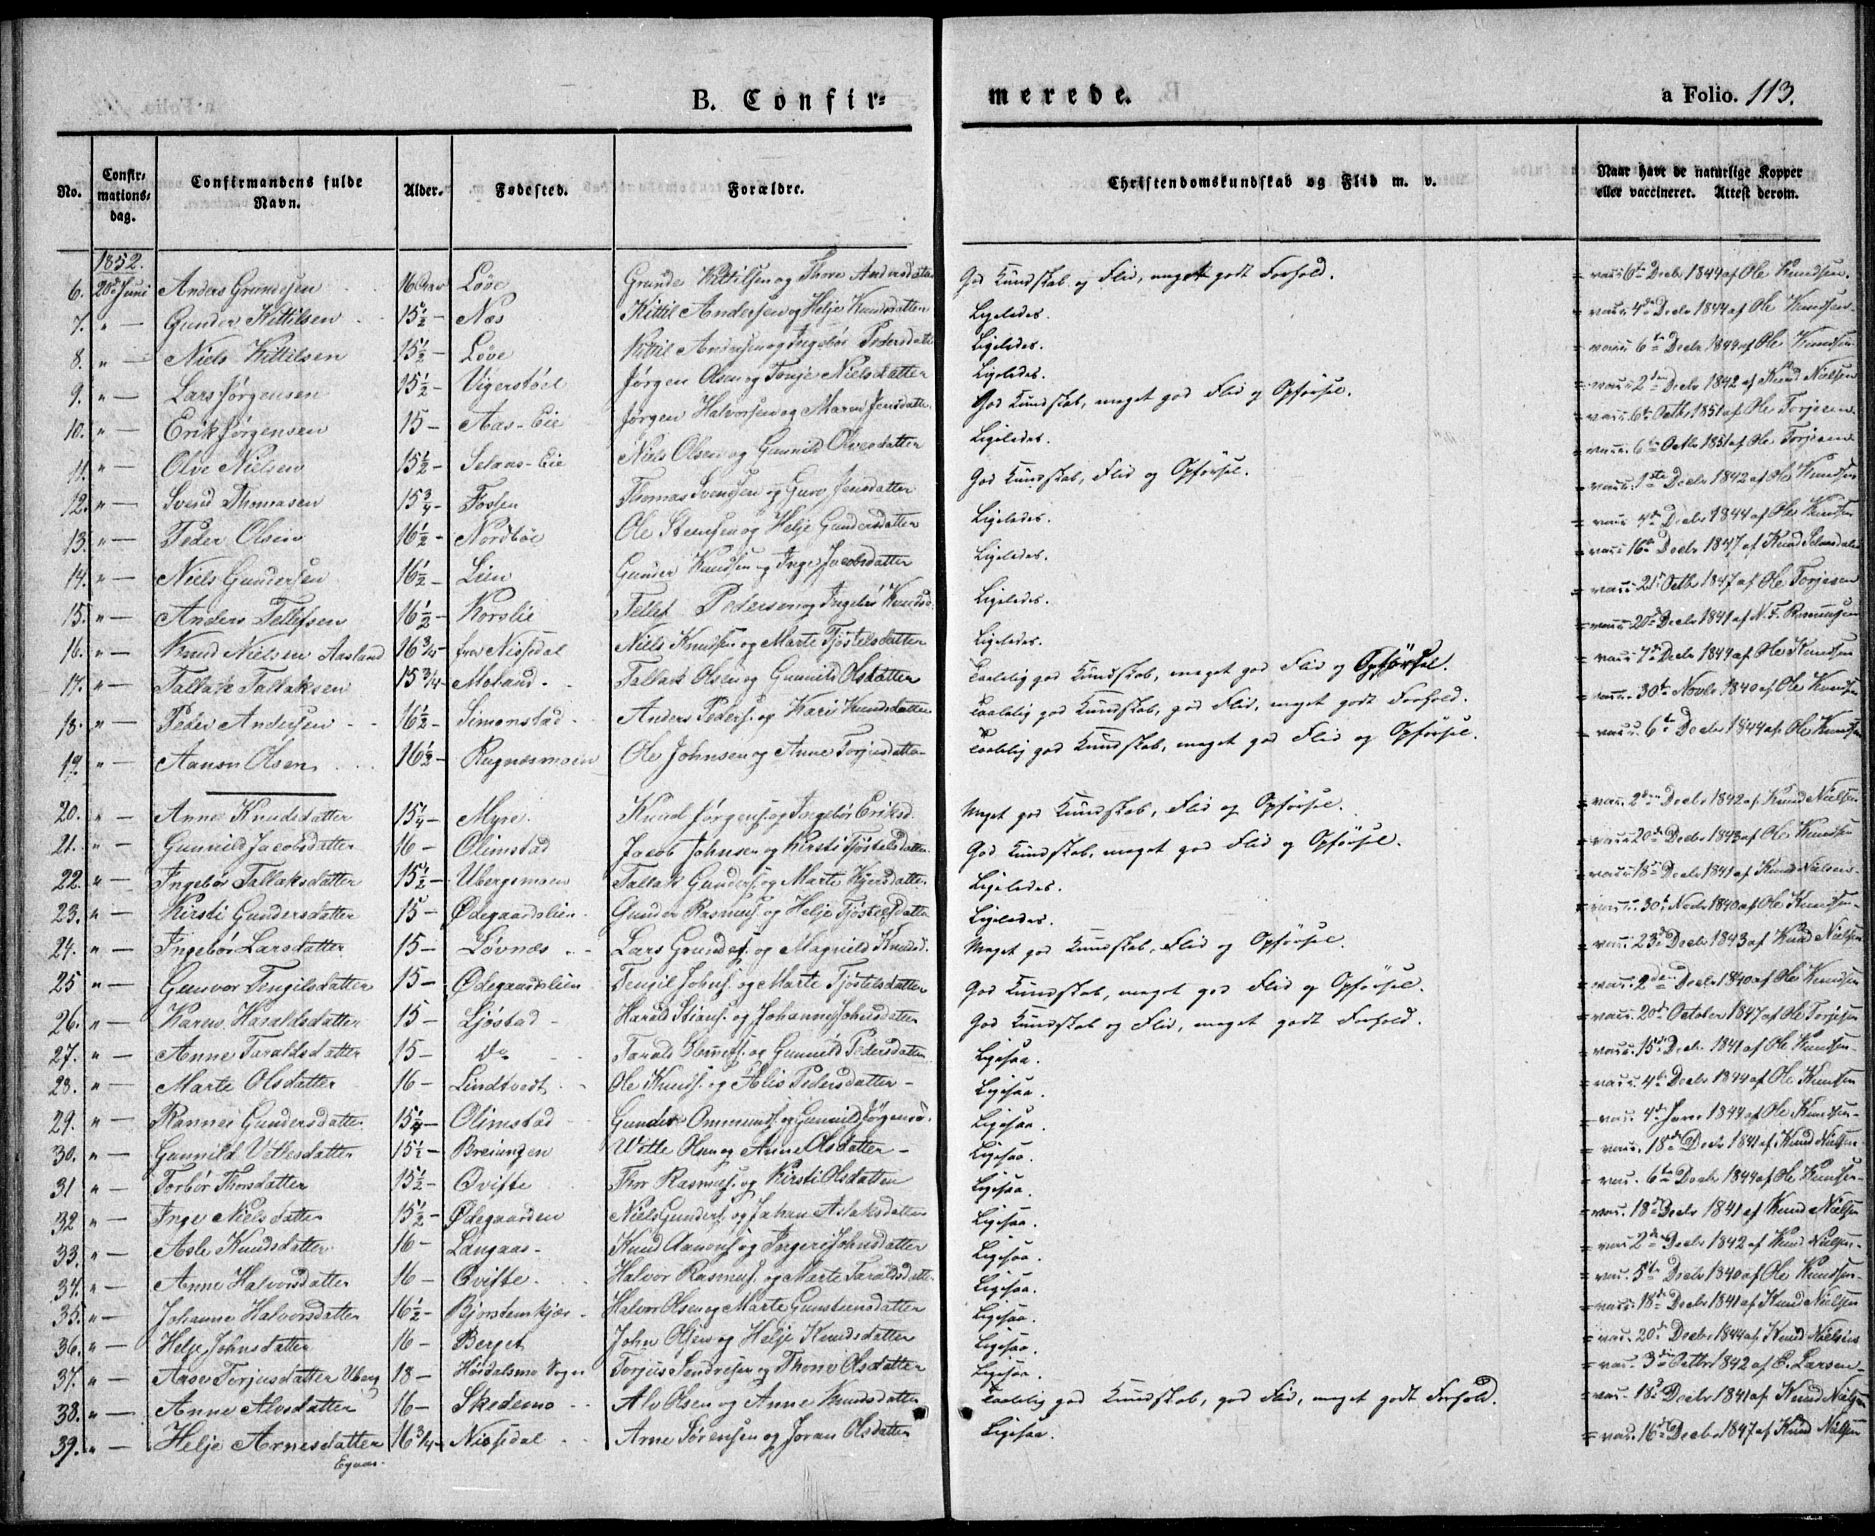 B. Confir=
merede.
a Folio. 113.
No. | Confir-mations-dag. | Confirmandens fulde Navn. | Alder. | Fødested. | Forældre. | Christendomskundskab og Flid m. v. | Naar have de naturlige Kopper eller vaccineret. Attest derom.
1852.
6. 20de Juni Anders Grundesen 16 Løve Grunde Kittilsen og Thore Andersdatter God Kundskab og Flid, meget godt Forhold. = vacc. 6te Decbr 1844 af Ole Knudsen.
7. " — Gunder Kittilsen 15½ — Næs Kittil Andersen og Helje Knudsdatter Ligeledes. = vacc. 4de Decbr 1844 af Ole Knudsen
8. " — Niels Kittilsen 15½ — Løve Kittil Andersen og Ingebør Pedersdatter Ligeledes. = vacc. 6te Decbr 1844 af Ole Knudsen
9. " — Lars Jørgensen 15½ — Vigerstøel Jørgen Olsen og Tonje Nielsdatter Ligeledes. = vacc. 2den Decbr 1842 af Knud Nielsen
10. " — Erik Jørgensen 15 — Aas-Eie Jørgen Halvorsen og Maren Jensdatter God Kundskab, meget god Flid og Opførsel. = vacc. 6te Octbr 1851 af Ole Torjesen
11. " — Olve Nielsen 15½ — Selaas-Eie Niels Olsen og Gunnild Olvesdatter Ligeledes. = vacc. 6te Octbr 1851 af Ole Torjesen
12. " — Svend Thomasen 15¾ — Fosten Thomas Svendsen og Guro Jensdatter God Kundskab, Flid og Opførsel. = vacc. 1ste Decbr 1842 af Ole Knudsen
13. " — Peder Olsen 16½ — Nordbøe Ole Stensen og Helje Gundersdatter Ligeledes. = vacc. 4de Decbr 1844 af Ole Knudsen
14. " — Niels Gundersen 16½ — Lien Gunder Knudsen og Inge Jacobsdatter Ligeledes. = vacc. 16de Decbr 1847 af Knud
15. " — Anders Tellefsen 16½ — Korslie Tellef Pedersen og Ingebør Knudsd. Ligeledes. = vacc. 21de Octbr 1847 af Ole Torjesen
16. " — Knud Nielsen Aasland 16¾ — fra Nissedal Niels Knudsen og Marte Tjøstelsdatter Ligeledes. = vacc. 20de Decbr 1841 af N. F. Rasmussen
17. " — Tallak Tallaksen 15¾ — Moland Tallak Olsen og Gunnild Olsdatter Taalelig god Kundskab, meget god Flid og Opførsel. = vacc. 7de Decbr 1844 af Ole Knudsen
18. " — Peder Andersen 16½ — Simonstad Anders Peders. og Kari Knudsdatter Taalelig god Kundskab, god Flid, meget godt Forhold. = vacc. 30te Novbr 1840 af Ole Knudsen
19. " — Aanon Olsen 16½ — Rugnæsmoen Ole Johnsen og Anne Torjusdatter Taalelig god Kundskab, meget god Flid og Opførsel. = vacc. 6te Decbr 1844 af Ole Knudsen
20. " — Anne Knudsdatter 15¼ — Myre. Knud Jørgens. og Ingebør Eriksd. Meget god Kundskab, Flid og Opførsel. = vacc. 2den Decbr 1842 af Knud Nielsen
21. " — Gunnild Jacobsdatter 16 — Olimstad Jacob Johnsen og Kirsti Tjøstelsdatter God Kundskab, meget god Flid og Opførsel. = vacc. 20de Decbr 1843 af Ole Knudsen
22. " — Ingebør Tallaksdatter 15½ — Ubergsmoen Tallak Gunders. og Marte Kjersdatter Ligeledes. = vacc. 18de Decbr 1841 af Knud Nielsen
23. " — Kirsti Gundersdatter 15 — Ødegaardslien. Gunder Rasmus. og Helje Tjøstelsdatter Ligeledes. = vacc. 30te Novbr 1840 af Ole Knudsen
24. " — Ingebør Larsdatter 15 — Løvnæs Lars Grundes. og Magnild Knudsd. Meget god Kundskab, Flid og Opførsel. = vacc. 23de Decbr 1843 af Knud Nielsen
25 " — Gunvor Tengilsdatter 15 — Ødegaardslien Tengil Johns. og Marte Tjøstelsdatter God Kundskab, meget god Flid og Opførsel. = vacc. 2den Decbr 1840 af Ole Knudsen
26. " — Karen Haraldsdatter 15 — Ljøstad — Harald Stians. og Johanne Johnsdatter God Kundskab og Flid, meget godt Forhold. = vacc. 20de October 1847 af Ole Torjesen
27. " — Anne Taraldsdatter 15 — do Tarald Olsens. og Gunnild Pedersdatter Ligesaa. = vacc. 15de Decbr 1841 af Ole Knudsen
28. " — Marte Olsdatter 16 — Lindtvedt Ole Knuds. og Alis Pedersdatter — Ligesaa. = vacc. 4de Decbr 1844 af Ole Knudsen
29. " — Rannei Gundersdatter 15¼ — Olimstad Gunder Ommunds. og Gunnild Jørgensd. Ligesaa. = vacc. 4de Janr 1844 af Ole Knudsen
30. " — Gunnild Vetlesdatter 15½ — Breiungen Wetle Olsen og Anne Olsdatter — Ligesaa. = vacc. 18de Decbr 1841 af Knud Nielsen
31 " — Torbør Thorsdatter 15½ — Qvifte Thor Rasmus. og Kirsti Olsdatter Ligesaa. = vacc. 6te Decbr 1844 af Ole Knudsen
32 " — Inge Nielsdatter 15½ — Ødegaarden Niels Gunders. og Johan Aslaksdatter Ligesaa. = vacc. 18de Decbr 1841 af Knud Nielsen
33. " — Asle Knudsdatter 16 — Langaas — Knud Aanons. og Ingeri Johnsdatter Ligesaa. = vacc. 2den Decbr 1842 af Knud Nielsen
34. " — Anne Halvorsdatter 16 — Qvifte. Halvor Rasmus. og Marte Taraldsdatter Ligesaa. = vacc. 5te Decbr 1840 af Ole Knudsen
35. " — Johanne Halvorsdatter 16½ — Bjorstemkjær Halvor Olsen og Marte Gunstensdatter Ligesaa. = vacc. 18de Decbr 1841 af Knud Nielsen
36. " — Helje Johnsdatter 16 — Berget John Olsen og Helje Knudsdatter Ligesaa. = vacc. 20de Decbr 1844 af Knud Nielsen
37. " — Aase Torjusdatter Uberg 18 — Høidalsmo Sogn Torjus Sondresen og Thone Olsdatter Ligesaa. = vacc. 3de Octbr 1842 af E. Larsen
38. " — Anne Alvsdatter 16 — Skedemo Alv Olsen og Anne Knudsdatter Taalelig god Kundskab, god Flid, meget godt Forhold. = vacc. 18de Decbr 1841 af Knud Nielsen
39. " — Helje Arnesdatter 16¾ — Nissedal Arne Sørensen og Joran Olsdatter Ligesaa. = vacc. 16de Decbr 1847 af Knud Nielsen